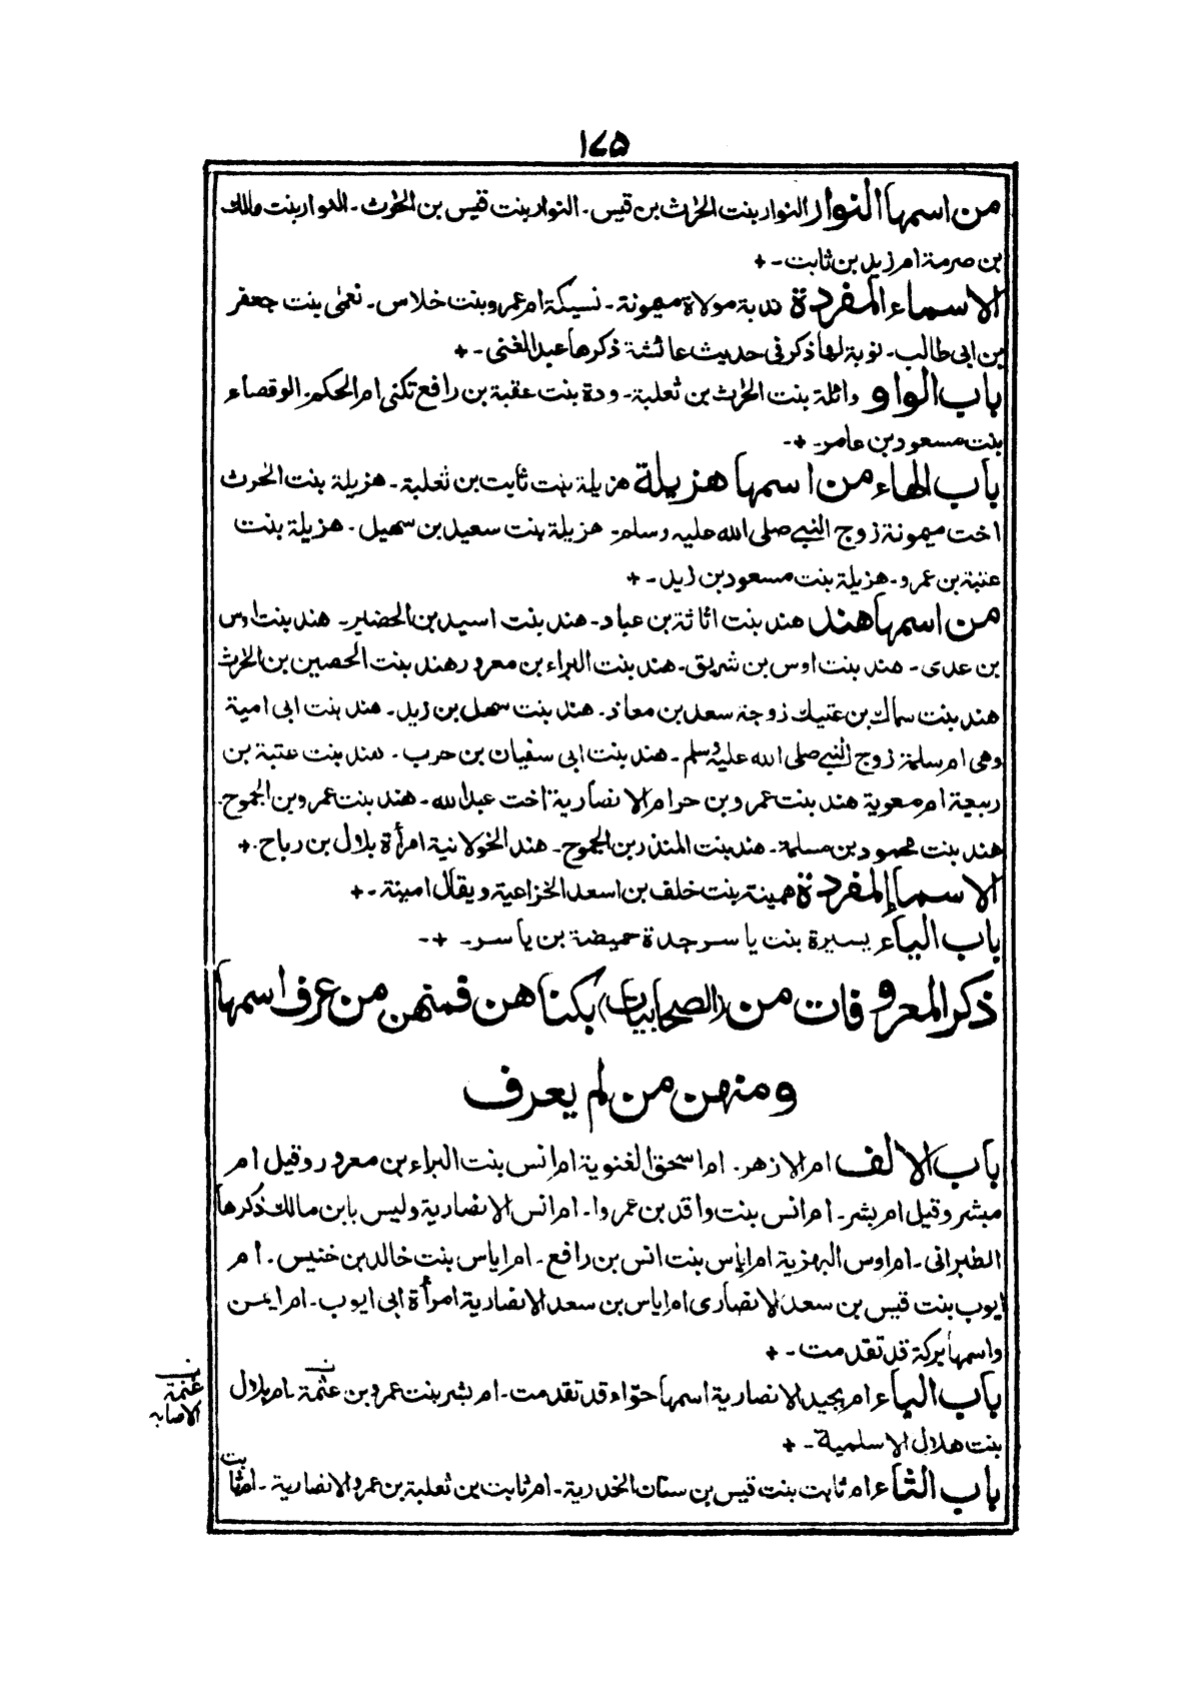 ١٧٥
من اسمها النوار النوار بنت الحٰرث بن قيس ـ النوار بنت قيس بن الحٰرث ـ النوار بنت مالك
بن صرمة ام زيد بن ثابت ـ +
الاسماء المفردة ندبة مولاة ميمونة ـ نسيكة ام عمرو بنت خلاس ـ نعمٰى بنت جعفر
بن ابى طالب ـ نوبة لها ذكر فى حديث عائشة ذكرها عبد الغنى ـ +
باب الواو واثلة بنت الحٰرث بن ثعلبة ـ ودة بنت عقبة بن رافع تكنى ام الحكم ـ الوقصاء
بنت مسعود بن عامر ـ + ـ
باب الهاء من اسمها هزيلة هزيلة بنت ثابت بن ثعلبة ـ هزيلة بنت الحٰرث
اخت ميمونة زوج النبي صلى الله عليه وسلم ـ هزيلة بنت سعيد بن سهيل ـ هزيلة بنت
عتبة بن عمرو ـ هزيلة بنت مسعود بن زيد ـ +
من اسمها هند هند بنت اثاثة بن عباد ـ هند بنت اسيد بن الحضير ـ هند بنت اوس
بن عدى ـ هند بنت اوس بن شريق ـ هند بنت البراء بن معرور هند بنت الحصين بن الحٰرث
هند بنت سماك بن عتيك زوجة سعد بن معاذ ـ هند بنت سهل بن زيد ـ هند بنت ابى امية
وهى ام سلمة زوج النبي صلى الله عليه وسلم ـ هند بنت ابى سفيان بن حرب ـ هند بنت عتبة بن
ربيعة ام معوية هند بنت عمرو بن حرام الانصارية اخت عبد الله ـ هند بنت عمرو بن الجموح ـ
هند بنت محمود بن مسلمة ـ هند بنت المنذر بن الجموح ـ هند الخولانية امرأة بلال بن رباح ـ +
الاسماء المفردة همينة بنت خلف بن اسعد الخزاعية ويقال امينة ـ +
باب الياء يسيرة بنت ياسر جدة حميضة بن ياسر ـ + ـ
ذكر المعروفات من (الصحابيات) بكناهن فمنهن من عرف اسمها
ومنهن من لم يعرف
باب الالف ام الازهر ـ ام اسحق الغنوية ام انس بنت البراء بن معرور وقيل ام
مبشر وقيل ام بشر ـ ام انس بنت واقد بن عمرو ا ـ ام انس الانصارية وليس بابن مالك ذكرها
الطبرانى ـ ام اوس البهزية ام اياس بنت انس بن رافع ـ ام اياس بنت خالد بن خنيس ـ ام
ايوب بنت قيس بن سعد الانصارى ام اياس بن سعد الانصارية امرأة ابى ايوب ـ ام ايمن
واسمها بركة قد تقدمت ـ +
باب الباء ام بجيد الانصارية اسمها حوّاء قد تقدمت ـ ام بشر بنت عمرو بن عثمة ـ ام بلال
بنت هلال الاسلمية ـ +
باب الثاء ام ثابت بنت قيس بن سنان الخدرية ـ ام ثابت بن ثعلبة بن عمرو الانصارية ـ ام ثابت
ن
غنمة
الاصابه